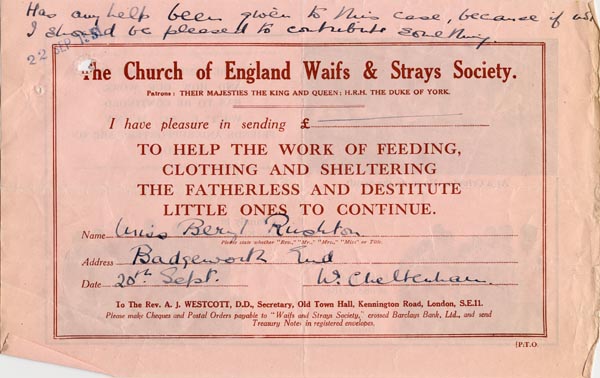 Has any help been given to this case, because if not,
I should be pleased to contribute something.
22 SEP 193
The Church of England Waifs & Strays Society.
Patrons: THEIR MAJESTIES THE KING AND QUEEN; H.R.H. THE DUKE OF YORK.
I have pleasure in sending £
TO HELP THE WORK OF FEEDING,
CLOTHING AND SHELTERING
THE FATHERLESS AND DESTITUTE
LITTLE ONES TO CONTINUE.
Name Miss Beryl Rushton
Please state whether "Rev.," "Mr.," "Mrs.," "Miss" or Title.
Address Badgeworth End
Date 20th Sept. W. Cheltenham.
To The Rev. A. J. WESTCOTT, D.D., Secretary, Old Town Hall, Kennington Road, London, S.E.11.
Please make Cheques and Postal Orders payable to "Waifs and Strays Society," crossed Barclays Bank, Ltd., and send
Treasury Notes in registered envelopes.
[P.T.O.